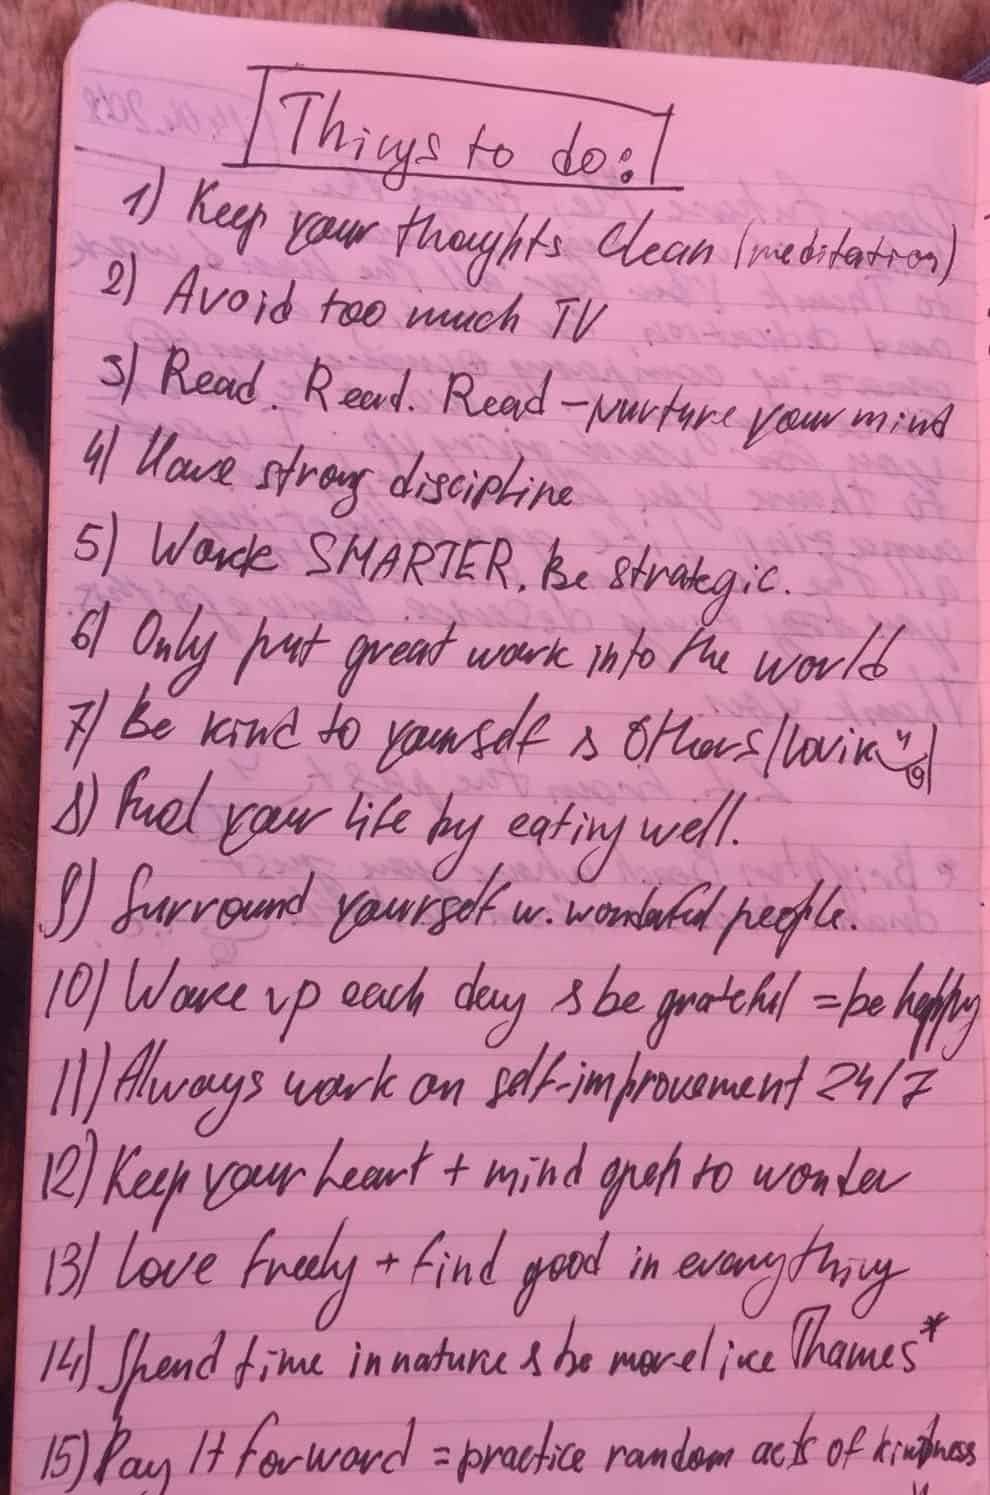 Things to do:
1) Keep your thoughts clean (meditation)
2) Avoid too much TV
3) Read. Read. Read – nurture your mind
4) Have strong discipline
5) Work SMARTER. Be strategic.
6) Only put great work into the world
7) Be kind to yourself & others
8) Fuel your life by eating well.
9) Surround yourself w. wonderful people.
10) Wake up each day & be grateful = be happy
11) Always work on self-improvement 24/7
12) Keep your heart + mind open to wonder
13) Love freely + find good in everything
14) Spend time in nature & be more like Thames*
15) Pay It Forward = practice random acts of kindness